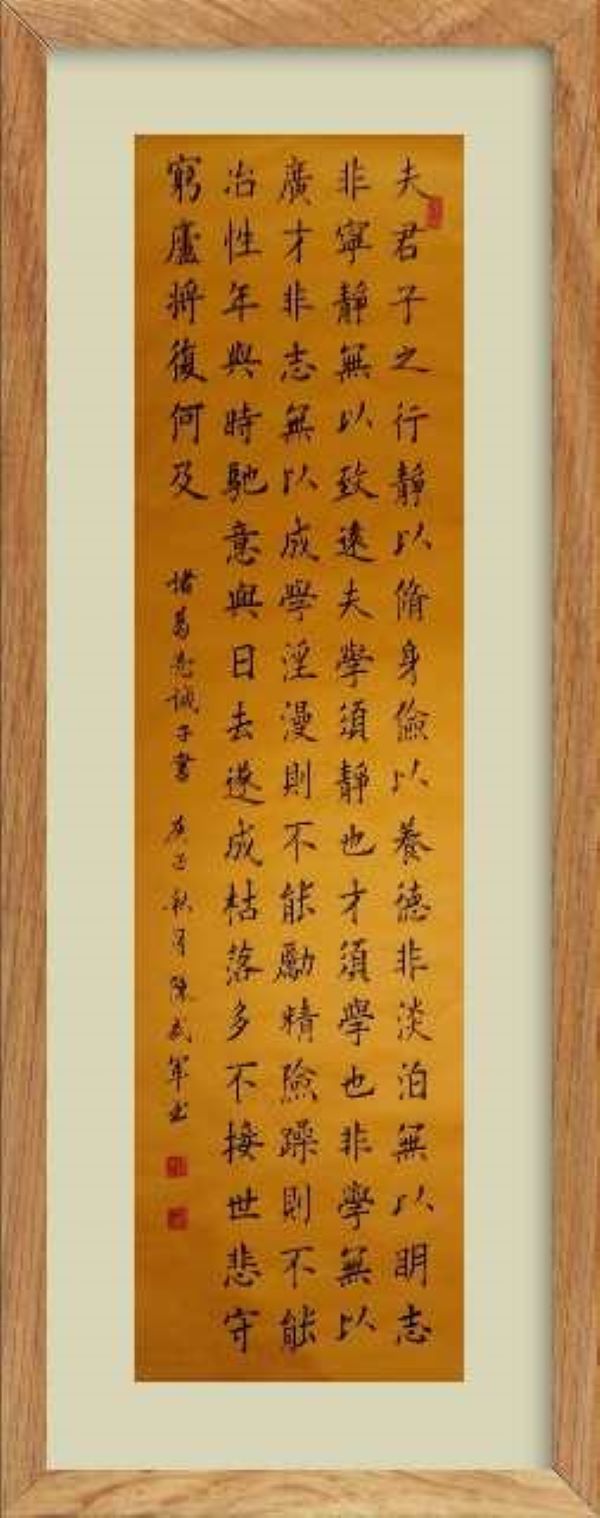 夫君子之行靜以脩身儉以養德非淡泊無以明志
非寧靜無以致遠夫學須靜也才須學也非學無以
廣才非志無以成學淫漫則不能勵精險躁則不能
冶性年與時馳意與日去遂成枯落多不接世悲守
窮廬將復何及
諸葛亮誡子書
秋月陳武軍書